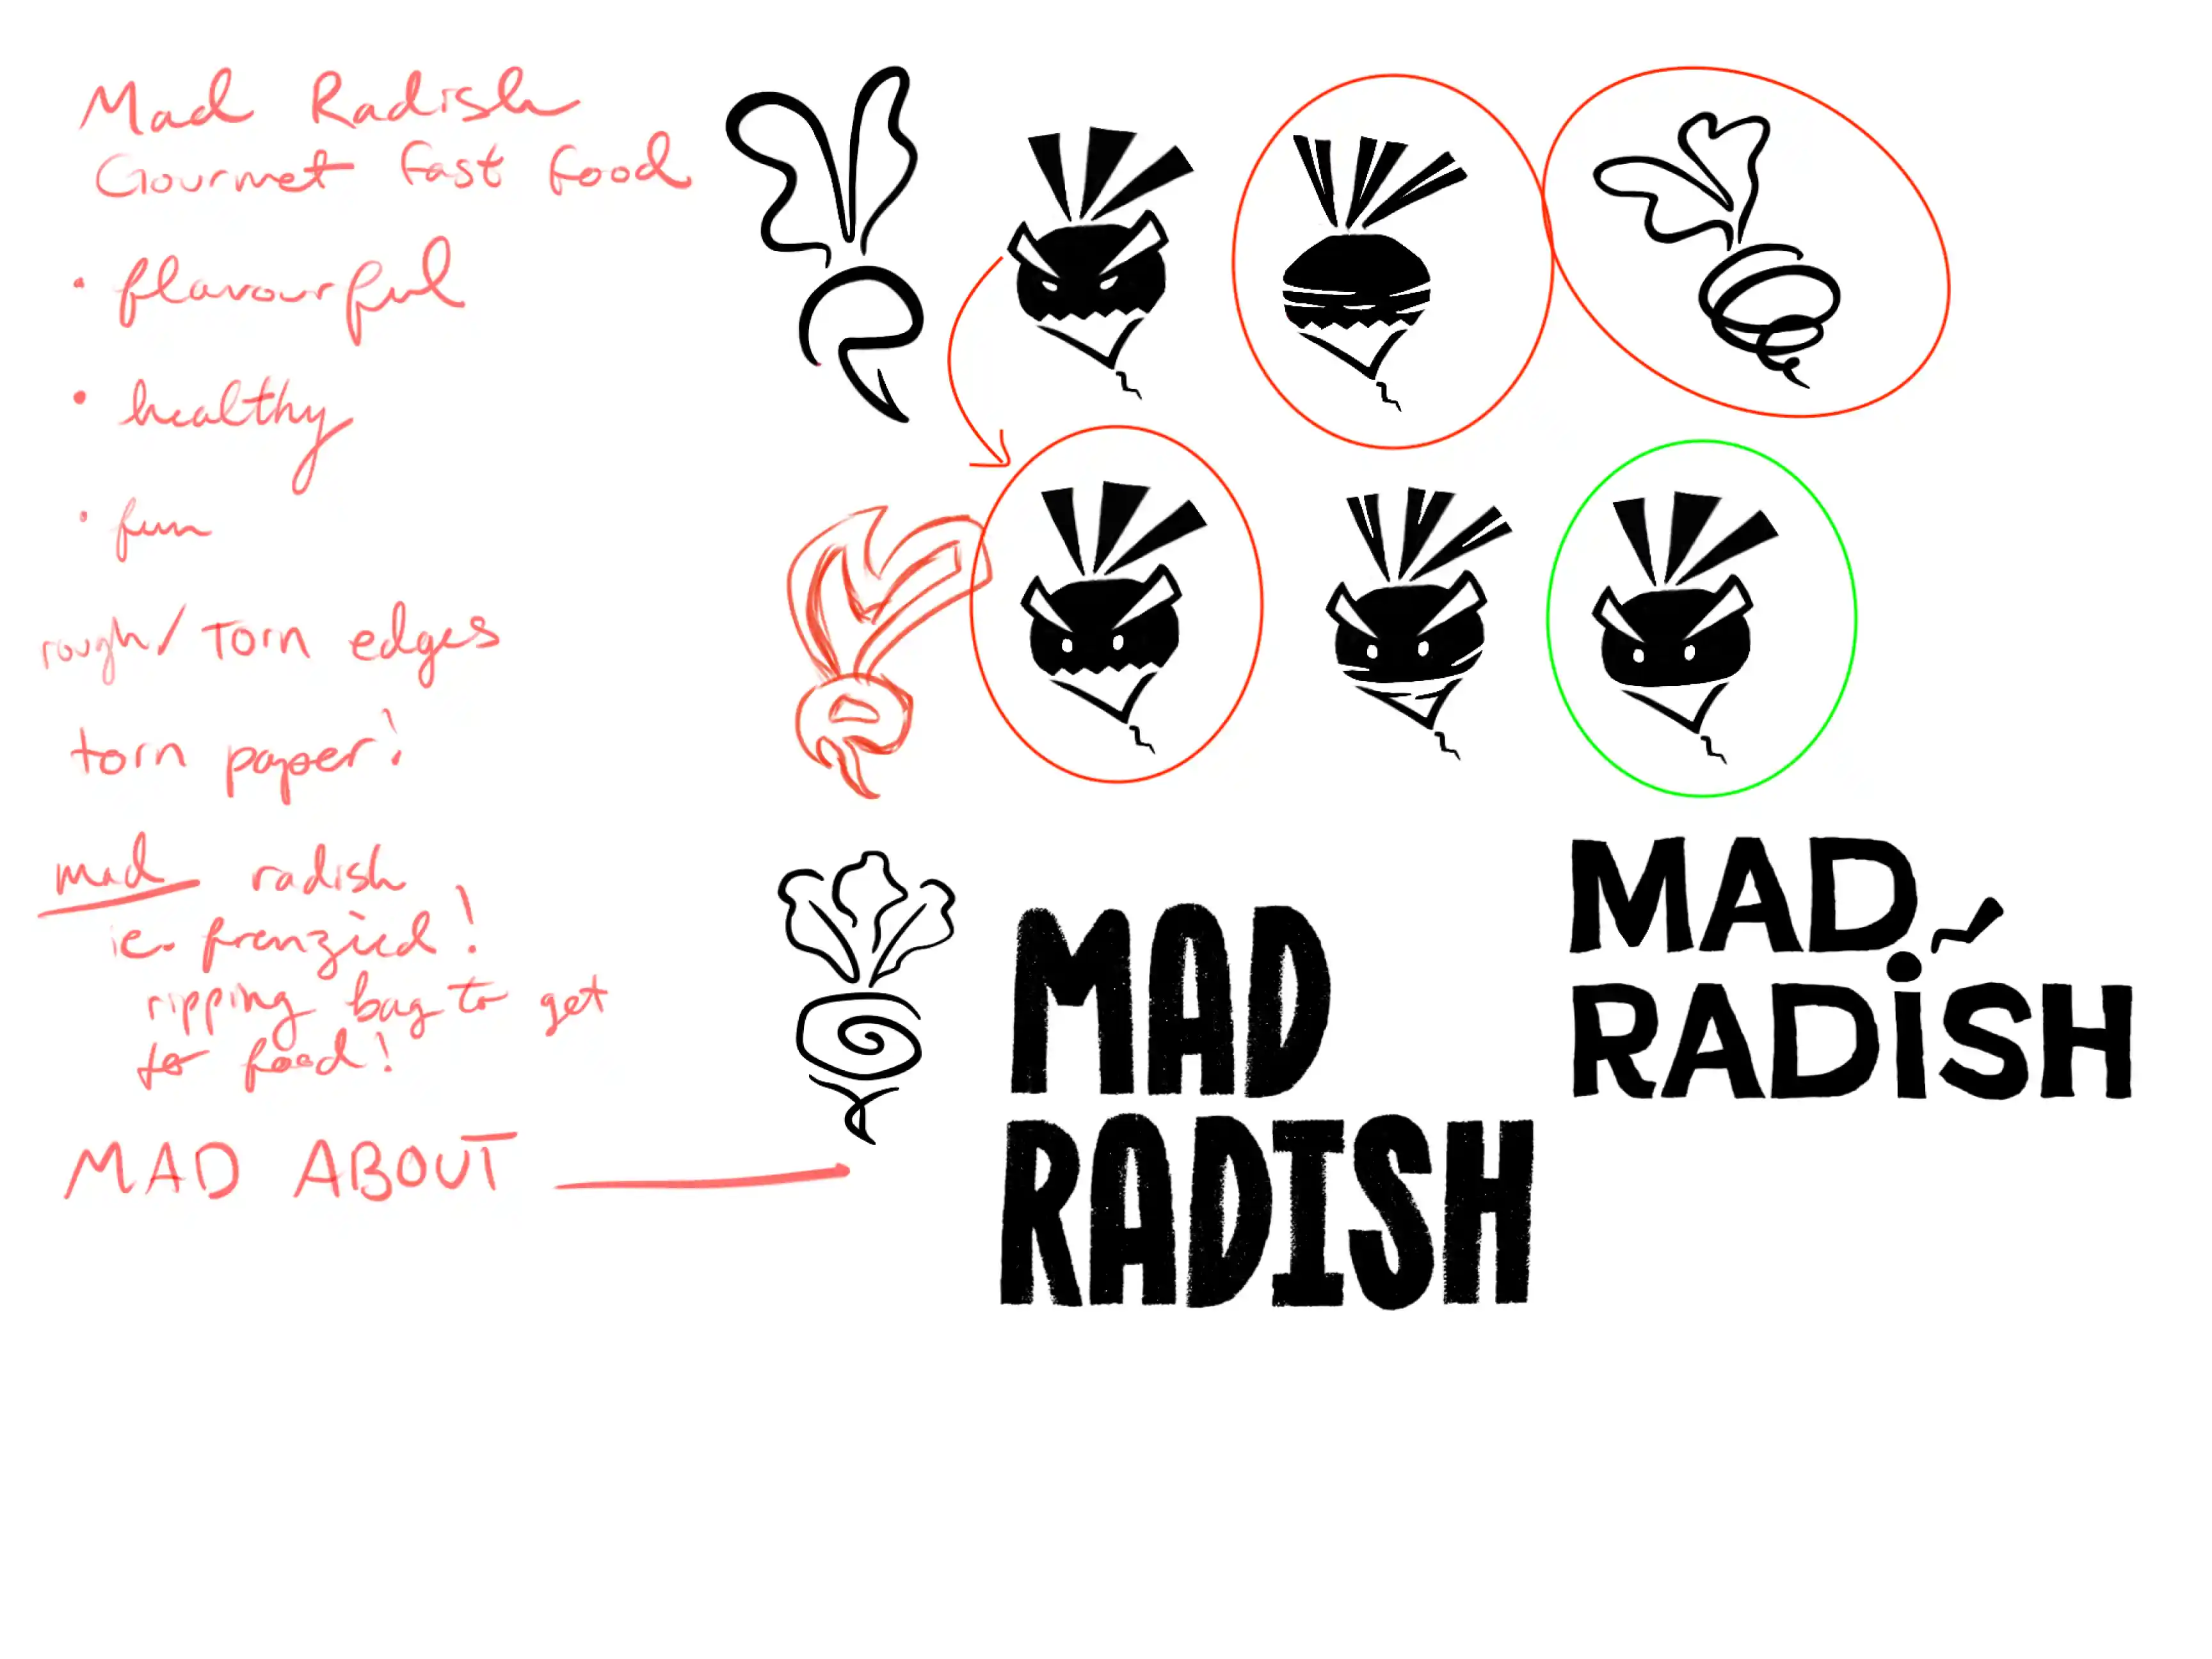 Mad Radish
Gourmet Fast Food
• flavourful
• healthy
• fun
rough/Torn edges
torn paper!
mad radish
ie. frenzied!
ripping bag to get
to food!
MAD ABOUT
MAD
RADISH
MAD
RADiSH